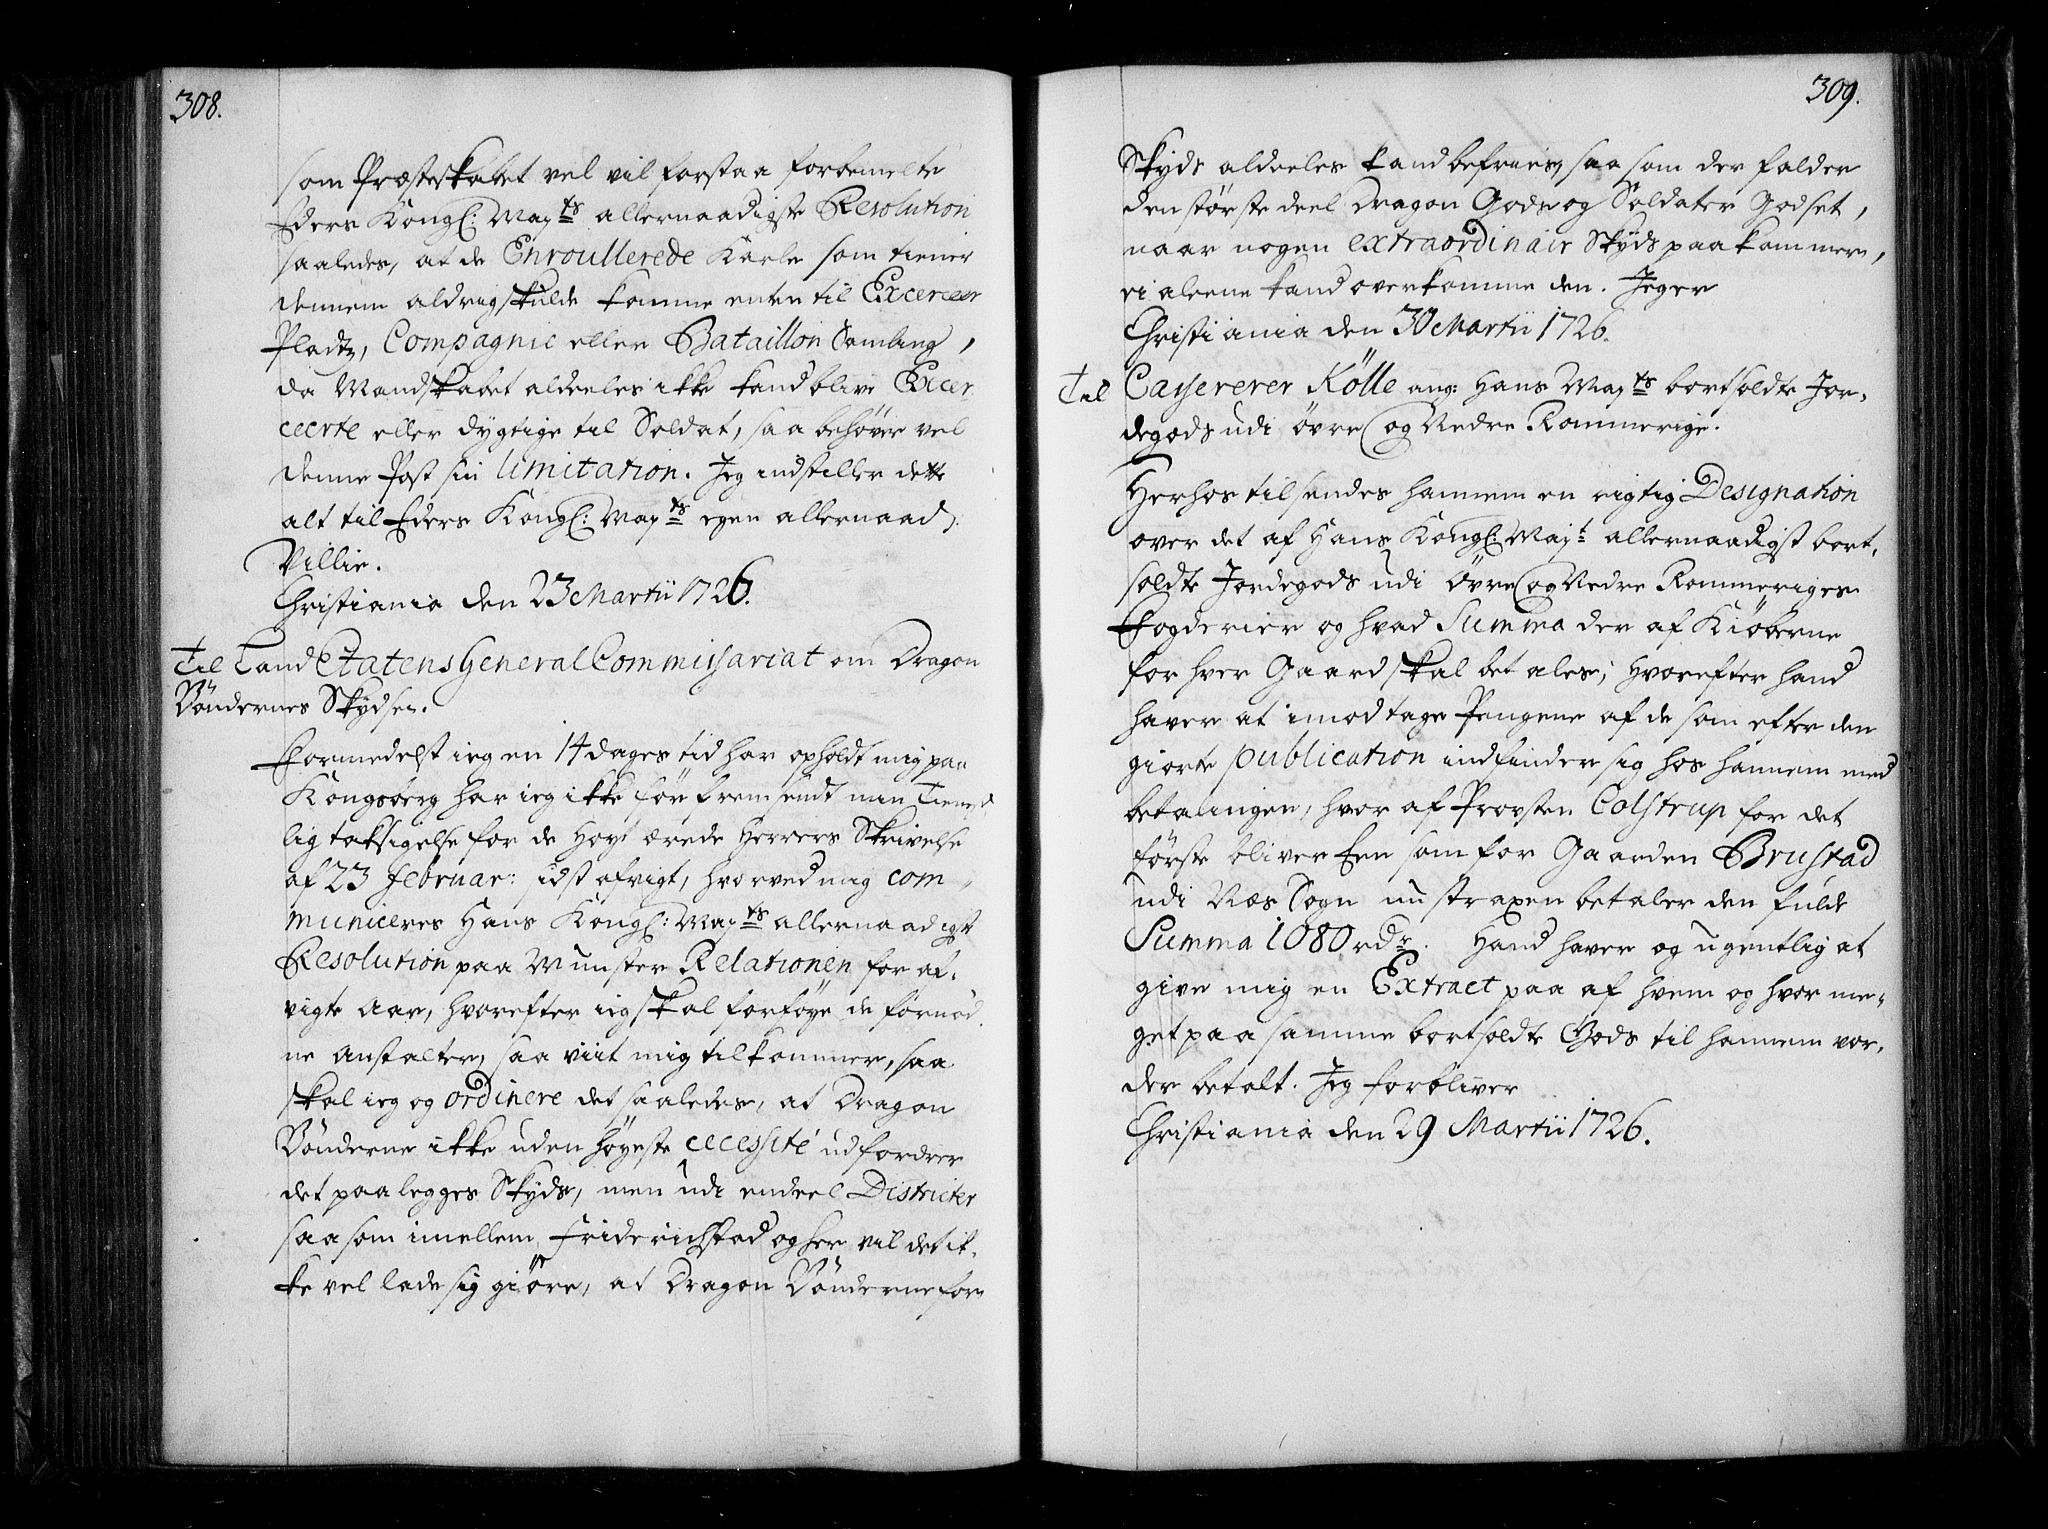 308.
som Præsteskabet vel vil forstaa forbemelte
Eders Kongl: May.ts allernaadigste Resolution
saaledes, at de Enroullerede Karle som tiener
dennem aldrig skulde komme enten til Excerceer
Pladtz, Compagnie eller Bataillon Samling,
da Mandskabet aldeeles ikke kand blive Excer
ceerte eller dygtige til Soldat, saa behøver vel
denne Post sin limitation. Jeg indstiller dette
alt til Eders Kongl: May.ts egen allernaad:
Villie.
Christiania den 23 Martii 1726.
Til Land Etatens General Commissariat om Dragon
Bøndernes Skydsen.
Formedelst ieg en 14 dages tid har opholdt mig paa
Kongsberg har ieg ikke før fremsendt min Tienst,
lig taksigelse for de Høyt ærede Herrers Skrivelse
af 23 Februar: sidst afvigt, hvorved mig com-
municeres Hans Kongl: May.ts allernaadigst
Resolution paa Munster Relationen for af-
vigte Aar, hvorefter ieg skal forføye de fornød
ne Anstalter, saa viit mig tilkommer, saa
skal ieg og ordinere det saaledes, at Dragon
Bønderne ikke uden høyeste cecessité udfordrer
det paalegges Skyds, men udi endeel Districter
saasom imellem Friderichstad og her vil det ik-
ke vel lade sig giøre, at Dragon Bønderne for
309.
Skyds aldeeles kand befries, saa som der falder
den største deel Dragon Gods og Soldater Godset,
naar nogen extraordinair Skyds paakommer,
ei alleene kand overkomme den. Jeg er
Christiania den 30 Martii 1726.
Til Casserer Kölle ang: Hans May.ts bortsoldte Jor-
degods udi øvre og Nedre Rommerige.
Herhos tilsendes hannem en rigtig Designation
over det af Hans Kongl: May.t allernaadigst bort,
soldte Jordegods udi Øvre og Nedre Rommeriges
Fogderier og hvad Summa der af Kiøberne
for hver Gaard skal betales; Hvorefter hand
haver at imodtage Pengene af de som efter den
giorte publication indfinder sig hos hannem med
betalingen, hvor af Provsten Colstrup for det
første bliver Een som for Gaarden Brustad
udi Næs Sogn nu straxen betaler den fulde
Summa 1080 rdr. Hand haver og ugentlig at
give mig en Extract paa af hvem og hvor me-
get paa samme bortsoldte Gods til hannem vor,
der betalt. Jeg forbliver
Christiania den 29 Martii 1726.